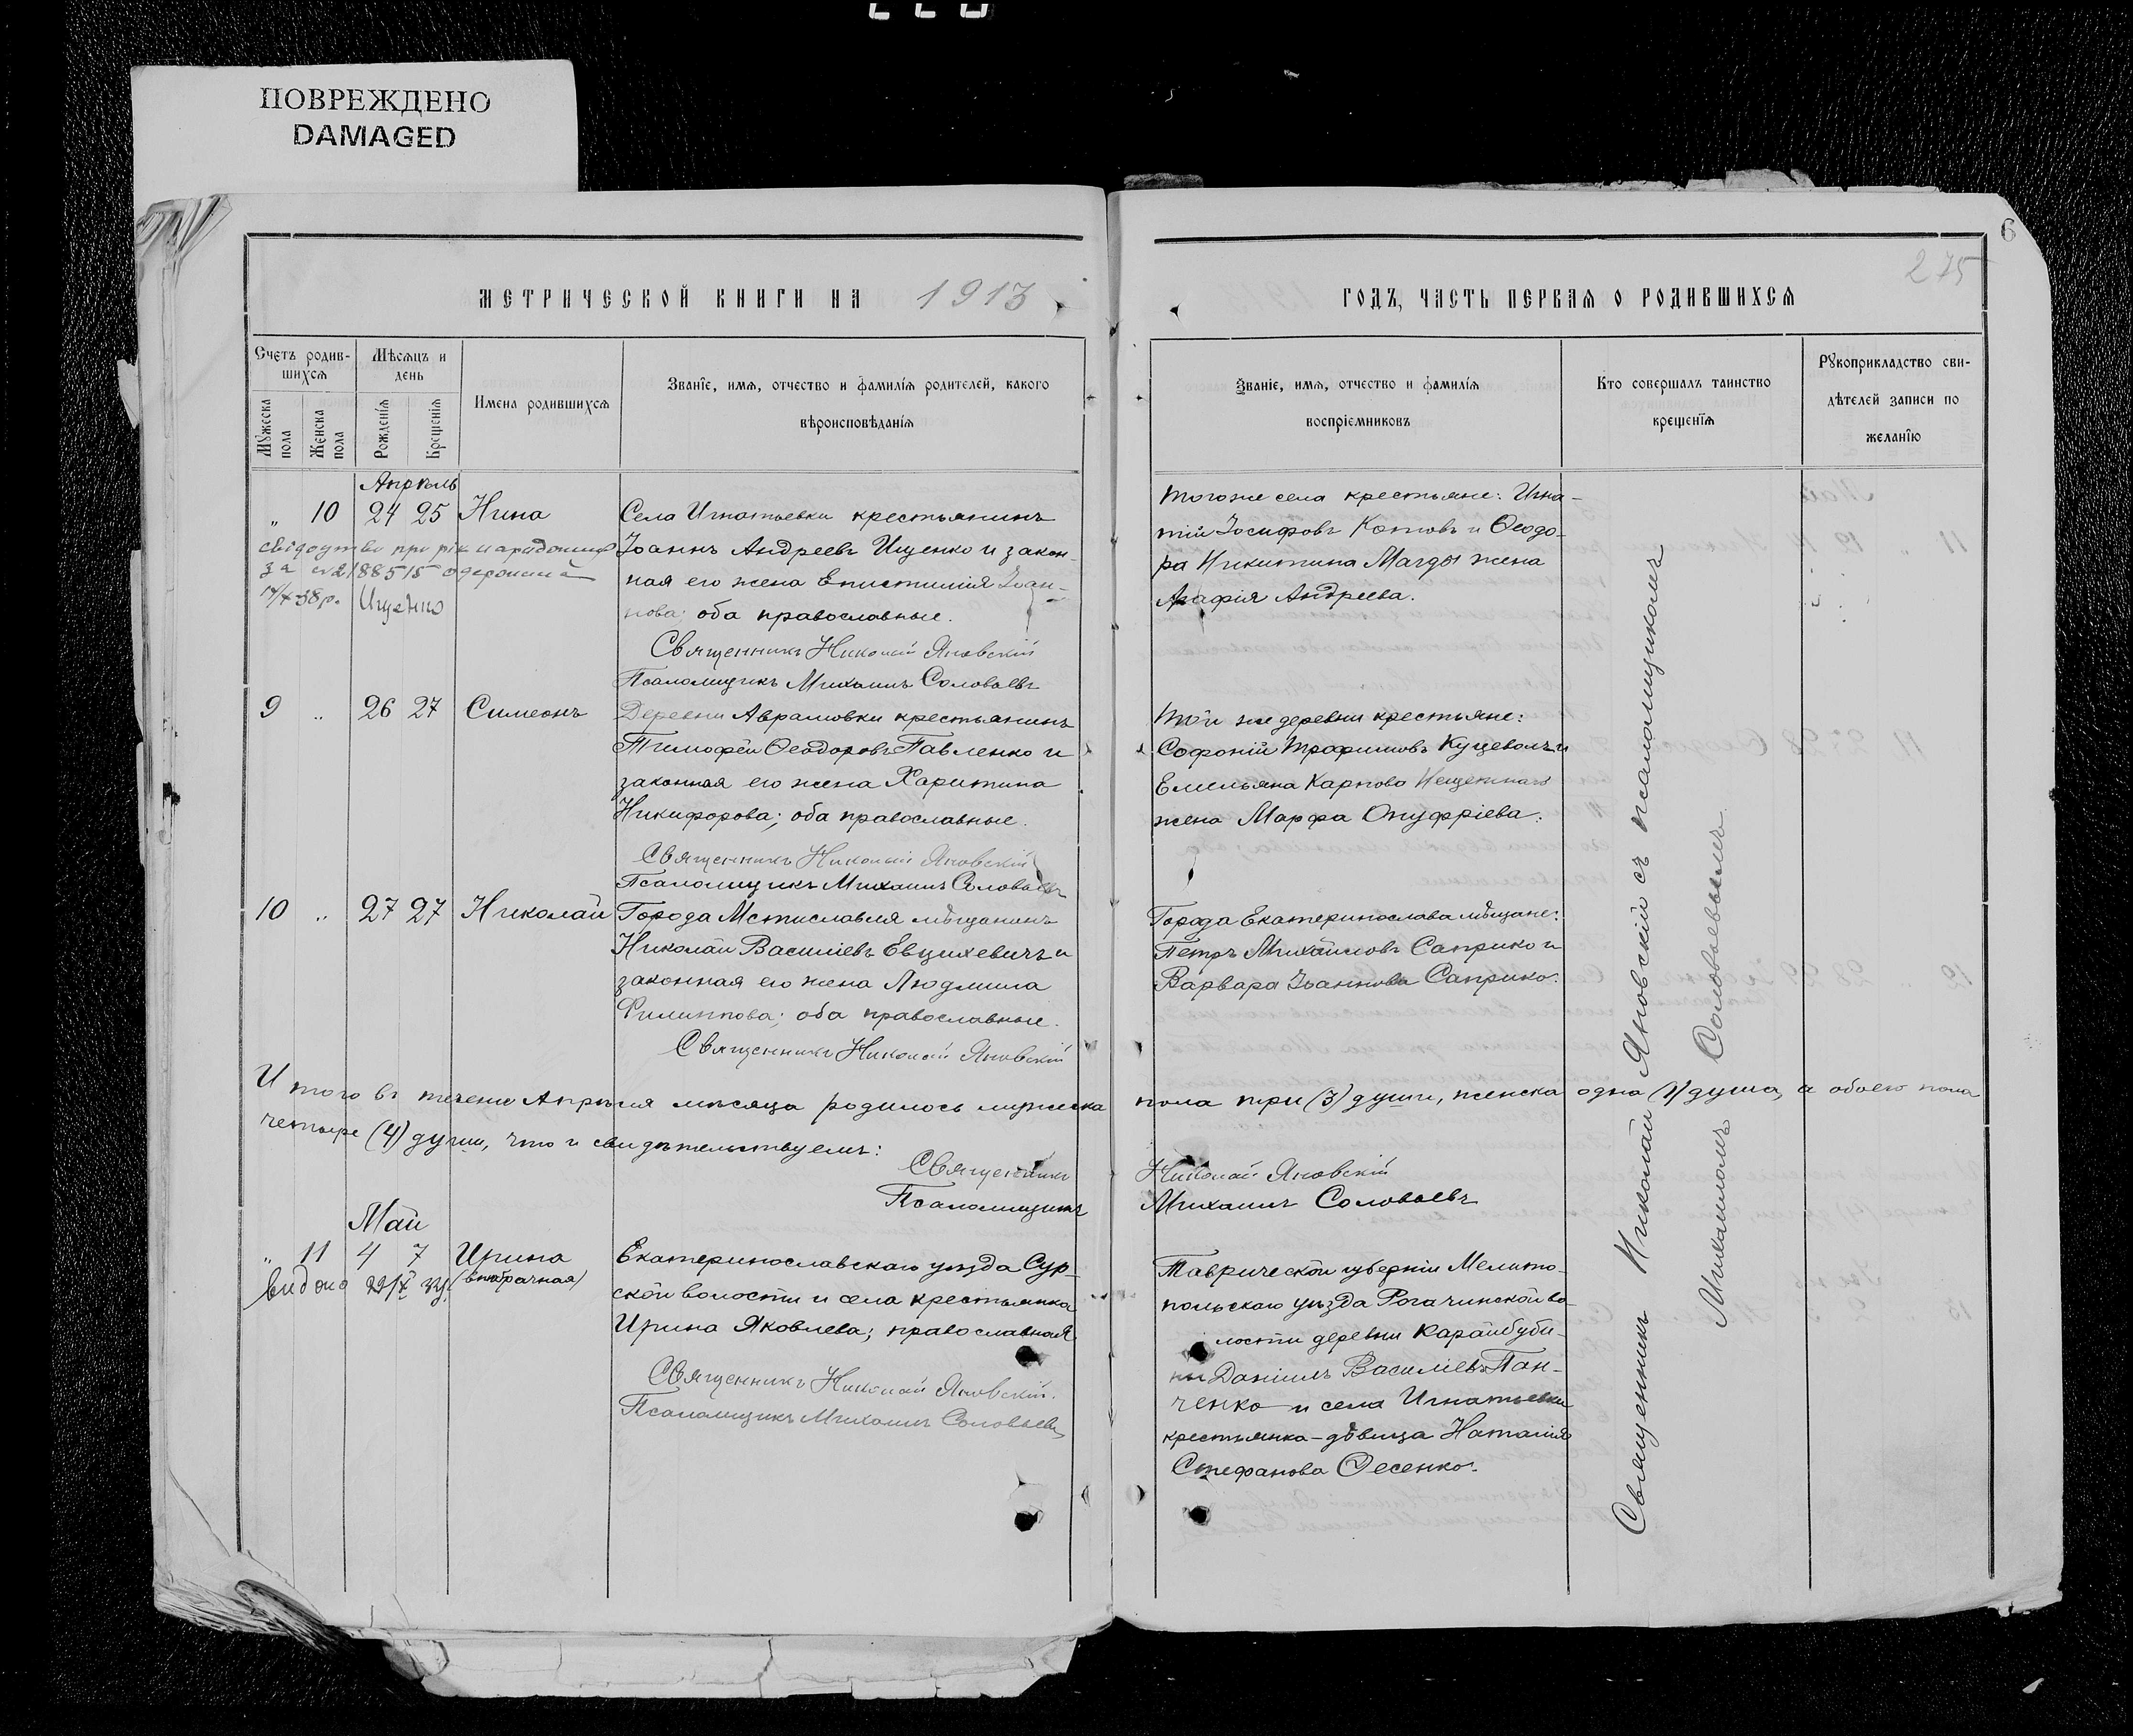 ПОВРЕЖДЕНО
DAMAGED
6
275
МЕТРИЧЕСКОЙ КНИГИ НА 1913
Счетъ родив-
шихся
Мѣсяцъ и
день
Мужеска
пола
Женска
пола
Рожденїя
Крещенїя
Имена родившихся
Званїе, имя, отчество и фамилїя родителей, какого
вѣроисповѣданїя
Апрѣль
„ 10 24 25 Нина
свідоцтво про
за №2188515
17/X-38р. Ищенко
Села Игнатьевки крестьянинъ
Іоаннъ Андреевъ Ищенко и закон-
ная его жена Епистимія Іоан-
нова; оба православные.
Священникъ Николай Яновскій
Псаломщикъ Михаилъ Соловьевъ
9 „ 26 27 Симеонъ
Деревни Аврамовки крестьянинъ
Тимофей Ѳеодоровъ Павленко и
законная его жена Харитина
Никифорова; оба православные.
Священникъ Николай Яновскій
Псаломщикъ Михаилъ Соловьевъ
10 „ 27 27 Николай
Города Мстиславля мѣщанинъ
Николай Василіевъ Евцихевичъ и
законная его жена Людмила
Филиппова; оба православные.
Священникъ Николай Яновскій
Итого въ течение Апрѣля мѣсяца родилось мужеска
четыре (4) души, что и свидѣтельствуемъ:
Священникъ
Псаломщикъ
Май
„ 11 4 7 Ирина
(внебрачная)
видано
Екатеринославскаго уѣзда Сур-
ской волости и села крестьянка
Ирина Яковлева; православная.
Священникъ Николай Яновскій.
Псаломщикъ Михаилъ Соловьевъ
ГОДЪ, ЧАСТЬ ПЕРВАЯ О РОДИВШИХСЯ
Званїе, имя, отчество и фамилїя
воспрїемниковъ
Кто совершалъ таинство
крещенїя
Рукоприкладство сви-
дѣтелей записи по
желанїю
Тогоже села крестьяне: Игна-
тій Іосифовъ Котовъ и Ѳеодо-
ра Никитина Магды жена
Агафія Андреева.
Той же деревни крестьяне:
Софоній Трофимовъ Куцеволъ и
Емельяна Карпова
жена Марфа Онуфріева.
Города Екатеринослава мѣщане:
Петръ Михайловъ Саприко и
Варвара Іоаннова Саприко.
пола три (3) души, женска одна (1) душа, а обоего пола
Николай Яновскій
Михаилъ Соловьевъ
Таврической губерніи Мелито-
польскаго уѣзда Рогачинской во-
лости деревни
Даніилъ Василіевъ Пан-
ченко и села Игнатьевки
крестьянка-дѣвица Наталія
Стефанова Фесенко.
Священникъ Николай Яновскій съ псаломщикомъ
Михаиломъ Соловьевымъ